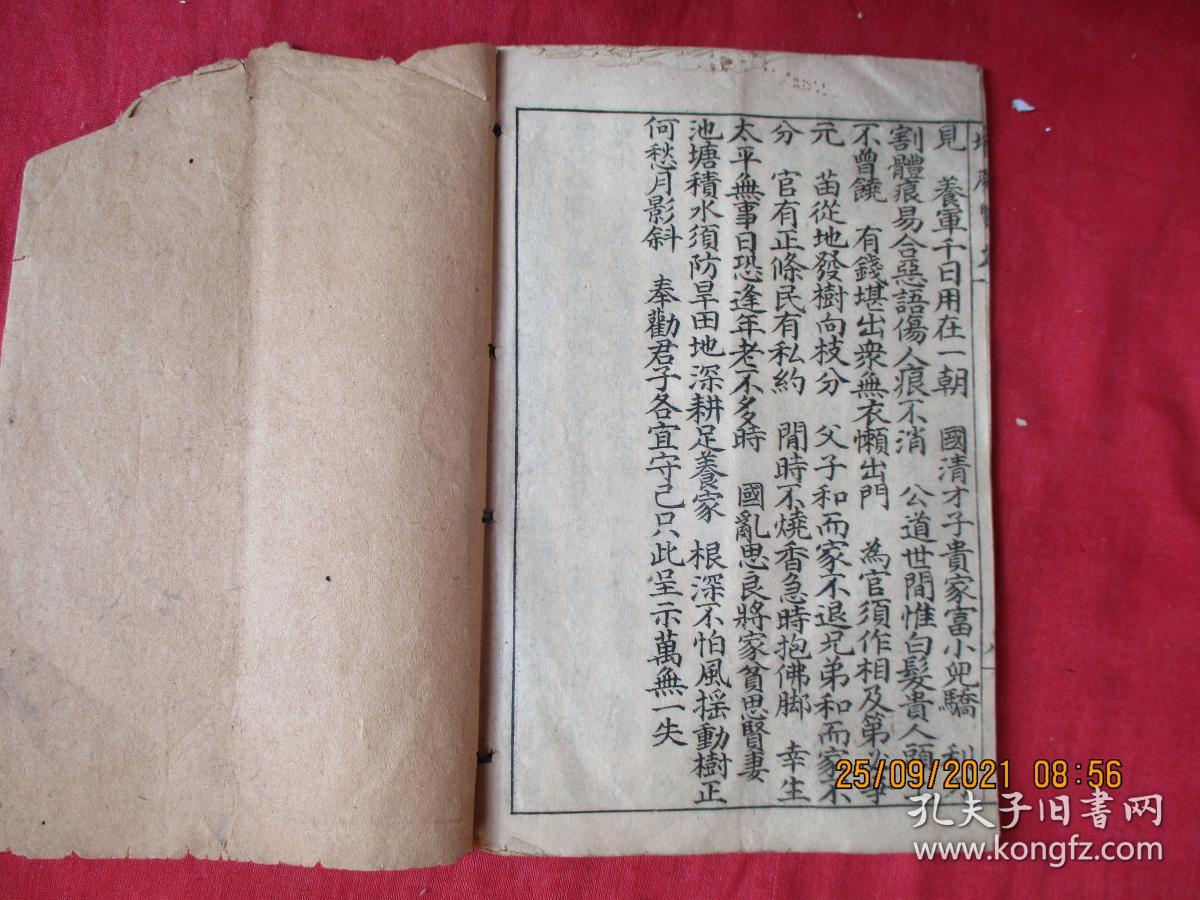 增廣賢文
見　養軍千日用在一朝　國清才子貴家富小兒驕　利
割體痕易合惡語傷人痕不消　公道世間惟白髮貴人頭
不曾饒　有錢堪出衆無衣懶出門　為官須作相及第
元　苗從地發樹向枝分　父子和而家不退兄弟和而家不
分　官有正條民有私約　閒時不燒香急時抱佛脚　幸生
太平無事日恐逢年老不多時　國亂思良將家貧思賢妻
池塘積水須防旱田地深耕足養家　根深不怕風搖動樹正
何愁月影斜　奉勸君子各宜守己只此呈示萬無一失
25/09/2021 08:56
孔夫子旧书网
www.kongfz.com